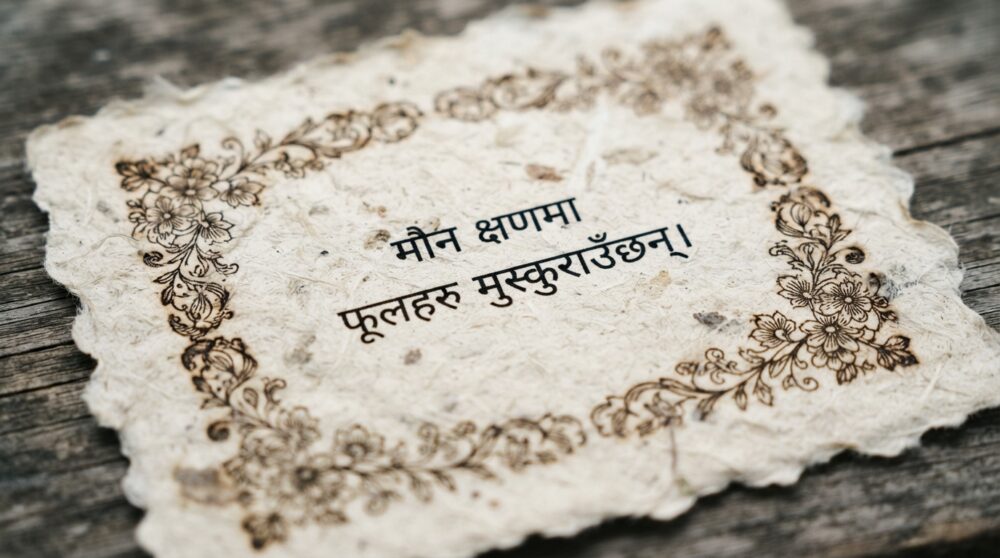 मौन क्षणमा
फूलहरु मुस्कुराउँछन्।